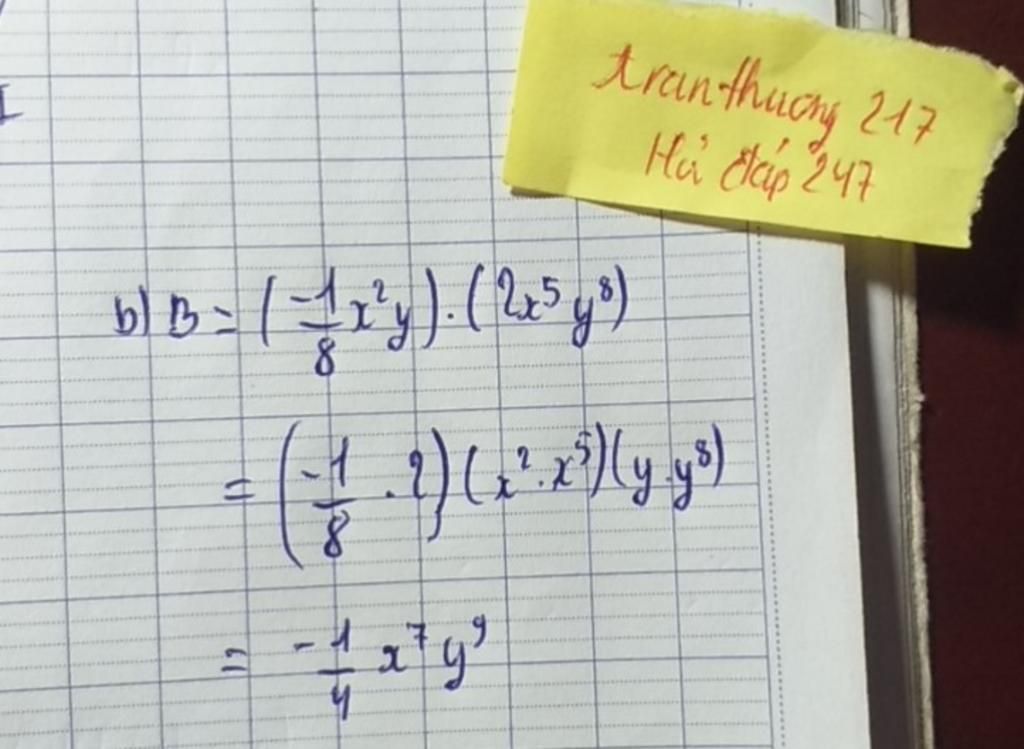 tranthuong 217
Hỏi đáp 247
b) B = (-1/8 x²y) . (2x⁵y⁸)
= (-1/8 . 2) (x² . x⁵) (y . y⁸)
= -1/4 x⁷y⁹